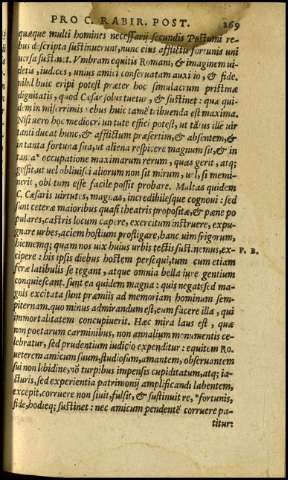 PRO C. RABIR. POST. 269
quæque multi homines necessarij secundis Postumi re-
bus descripta sustinuerunt, nunc eius afflictis fortunis uni
uersa sustinet. Vmbram equitis Romani, & imaginem ui-
detis, iudices, unius amici conseruatam auxilio, & fide.
nihil huic eripi potest præter hoc simulacrum pristinæ
dignitatis, quod Cæsar solus tuetur, & sustinet: quæ qui-
dem in miserrimis rebus huic tamen tribuenda est maxima.
Nisi uero hoc mediocri uirtute effici potest, ut tātus ille uir
tanti ducat hunc, & afflictum præsertim, & absentem, &
in tanta fortuna sua, ut aliena respicere magnum sit, & in
tanta* occupatione maximarum rerum, quas gerit, atq;
gessit, ut uel obliuisci aliorum non sit mirum, uel, si memi-
nerit, oblitum esse facile possit probare. Multas quidem
C. Cæsaris uirtutes, magnas, incredibilesque cognoui: sed
sunt ceteræ maioribus quasi theatris propositæ, & pæne po
pulares, castris locum capere, exercitum instruere, expu-
gnare urbes, aciem hostium profligare, hanc uim frigorum,
hiemumq; quam nos uix huius urbis tectis sustinemus, ex- P. B.
cipere: his ipsis diebus hostem persequi, tum cum etiam
feræ latibulis se tegant, atque omnia bella iure gentium
conquiescant. sunt ea quidem magna: quis negat? sed ma-
gnis excitata sunt præmijs ad memoriam hominum sem-
piternam. quo minus admirandum est, eum facere illa, qui
immortalitatem concupiuerit. Hæc mira laus est, quæ
non poetarum carminibus, non annalium monumentis ce-
lebratur, sed prudentium iudicio expenditur: equitem Ro.
ueterem amicum suum, studiosum, amantem, obseruantem
sui non libidine, nō turpibus impensis cupiditatum, atq; ia-
cturis, sed experientia patrimonij amplificandi labentem,
excepit, corruere non siuit, fulsit, & sustinuit re, *fortunis,
fide, hodieq; sustinet: nec amicum pendentē corruere pa-
titur: